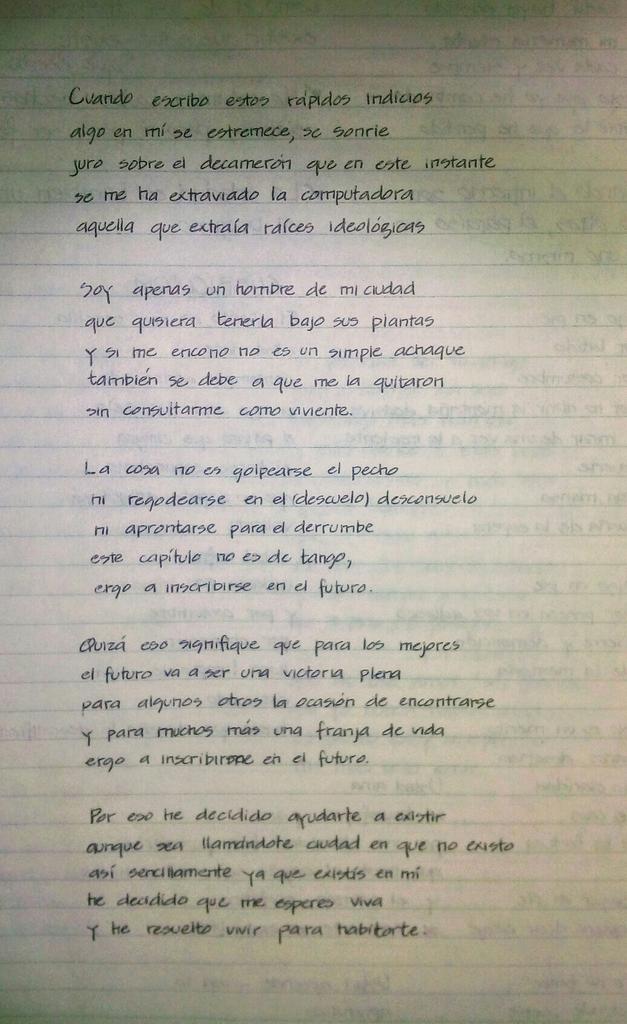 Cuando escribo estos rápidos indicios
algo en mí se estremece, se sonríe
juro sobre el decamerón que en este instante
se me ha extraviado la computadora
aquella que extraía raíces ideológicas
Soy apenas un hombre de mi ciudad
que quisiera tenerla bajo sus plantas
y si me encono no es un simple achaque
también se debe a que me la quitaron
sin consultarme como viviente.
La cosa no es golpearse el pecho
ni regodearse en el (descuelo) desconsuelo
ni aprontarse para el derrumbe
este capítulo no es de tango,
ergo a inscribirse en el futuro.
Quizá eso signifique que para los mejores
el futuro va a ser una victoria plena
para algunos otros la ocasión de encontrarse
y para muchos más una franja de vida
ergo a inscribirse en el futuro.
Por eso he decidido ayudarte a existir
aunque sea llamándote ciudad en que no existo
así sencillamente ya que existís en mí
he decidido que me esperes viva
y he resuelto vivir para habitarte.